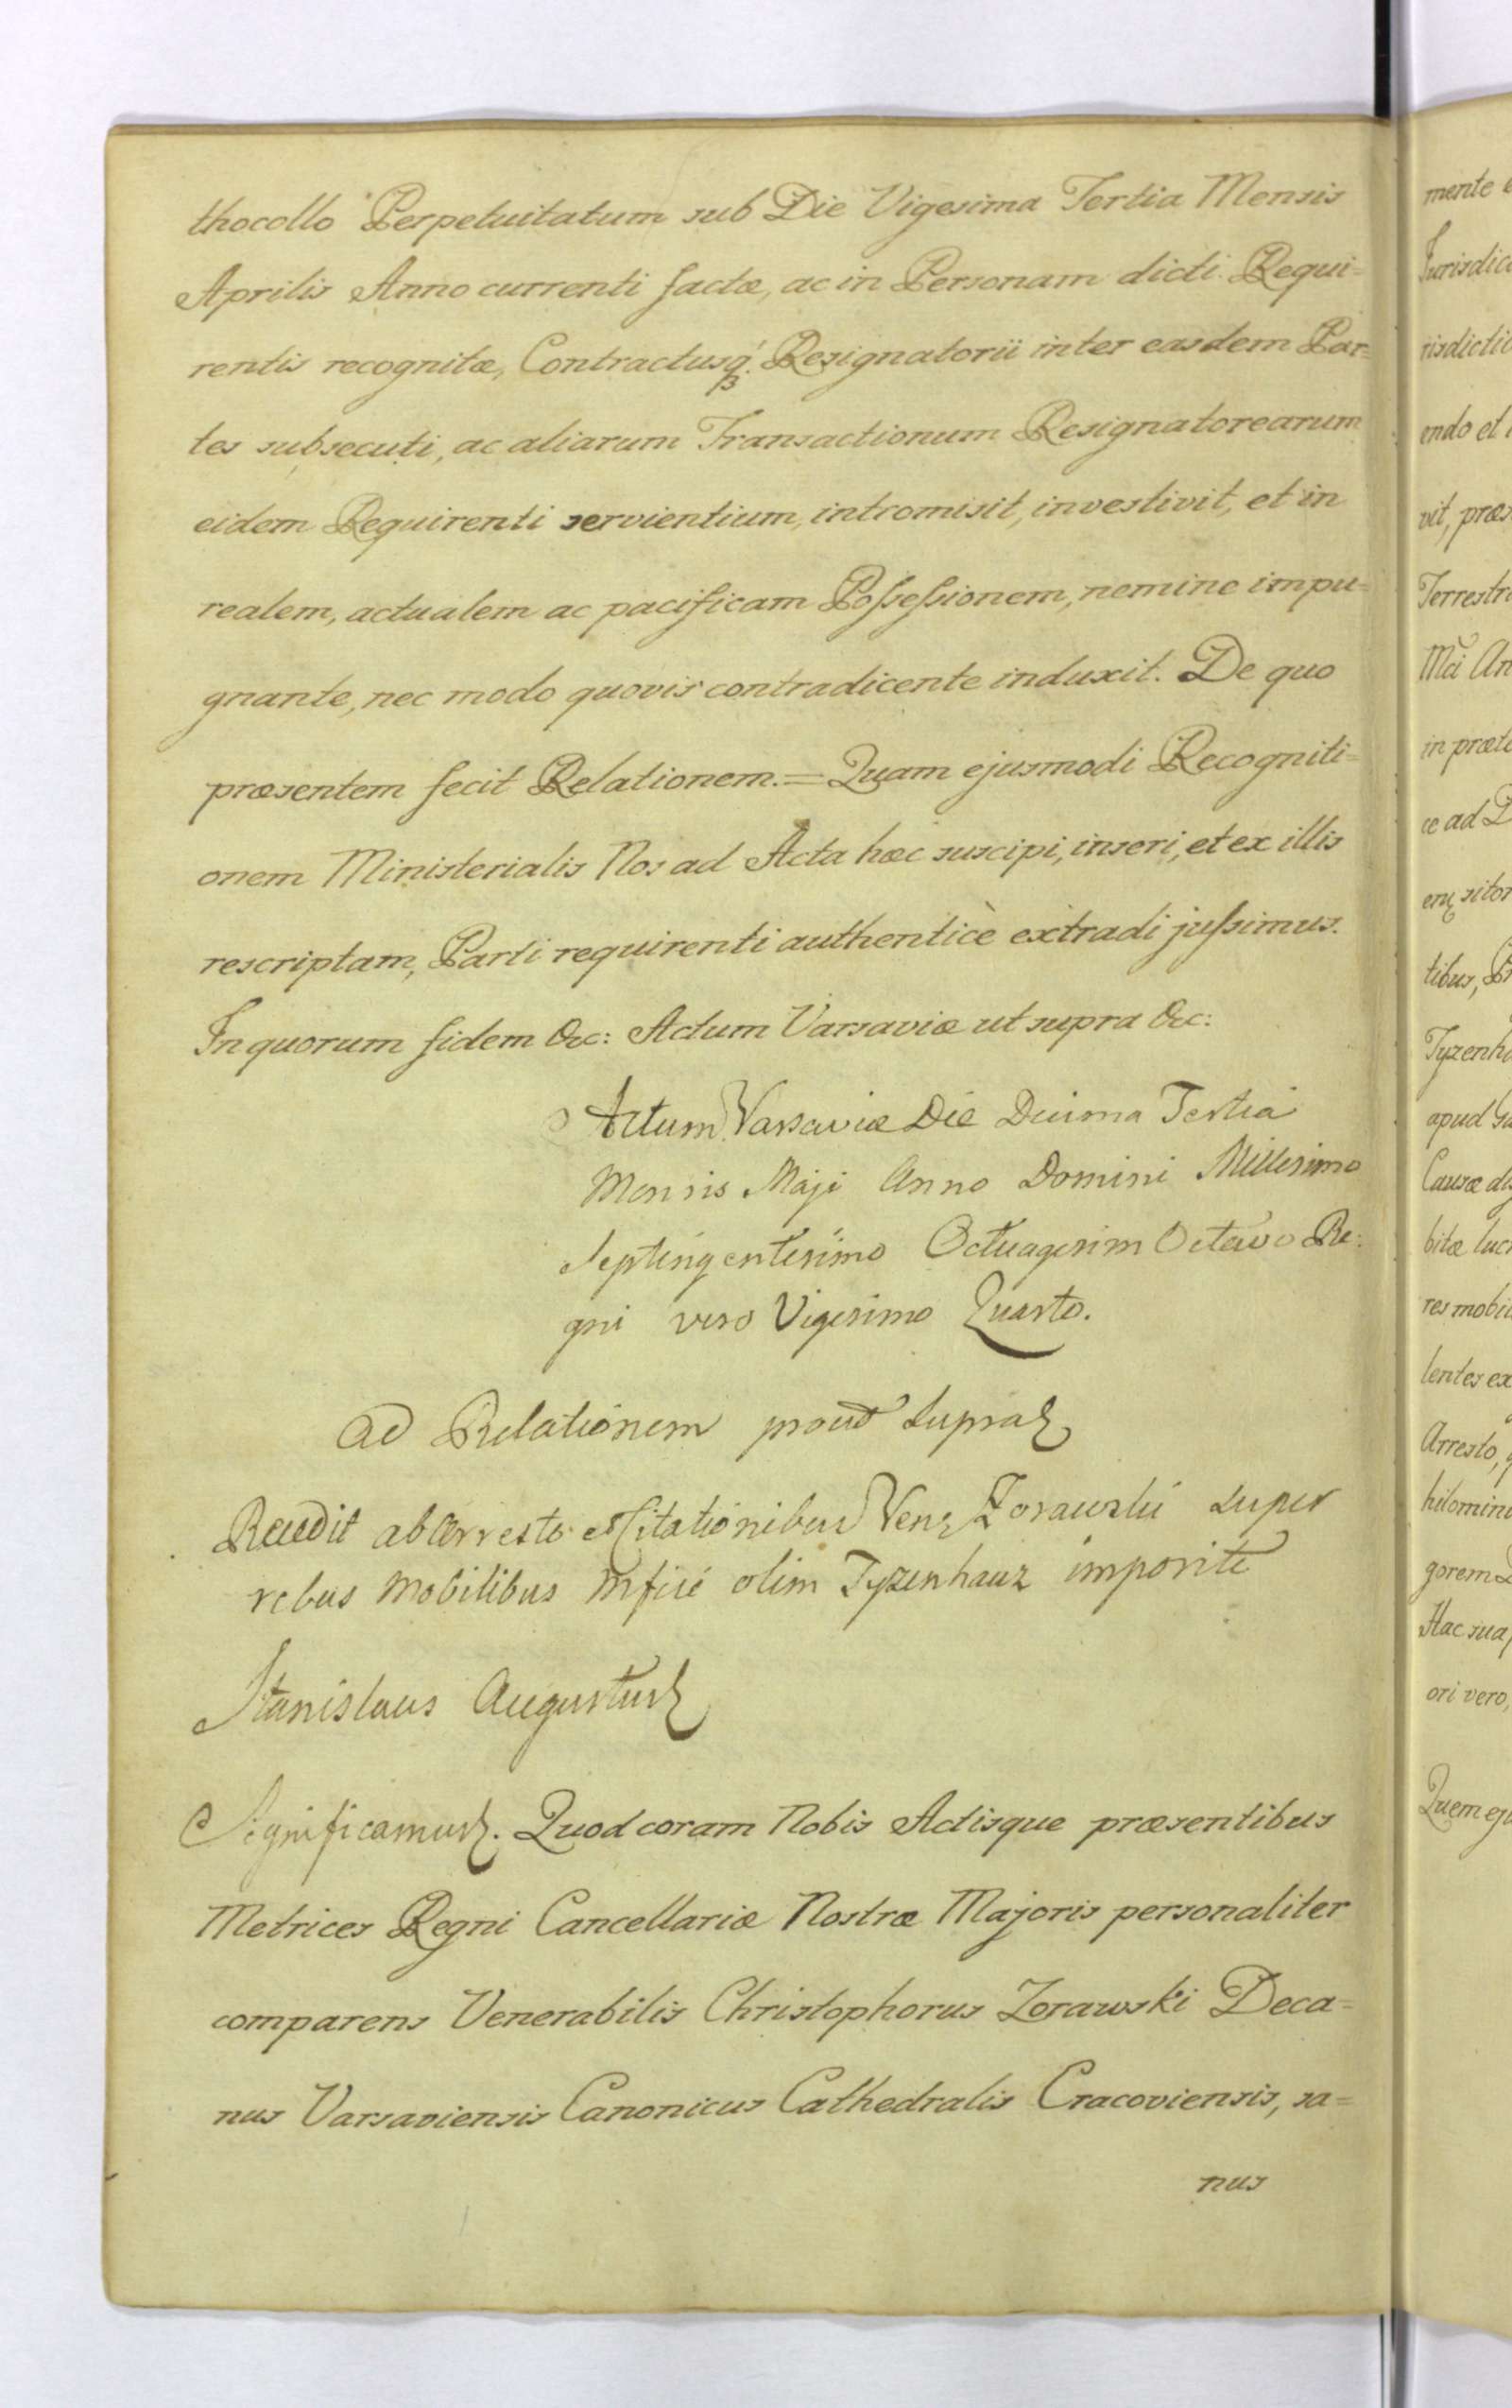 thocollo Perpetuitatum sub Die Vigesima Tertia Mensis
Aprilis Anno currenti factæ, ac in Personam dicti Requi=
rentis recognitæ, Contractusq3 Resignatorii inter easdem Par=
tes subsecuti, ac aliarum Transactionum Resignatorearum
eidem Requirenti servientium, intromisit, investivit, et in
realem, actualem ac pacificam Possessionem, nemine impu=
gnante, nec modo quovis contradicente induxit. De quo
præsentem fecit Relationem.= Quam ejusmodi Recogniti=
onem Ministerialis Nos ad Acta hæc suscipi, inseri, et ex illis
rescriptam, Parti requirenti authenticè extradi jussimus.
In quorum fidem &c: Actum Varsaviæ ut supra &c:
Actum Varsaviæ Die Decima Tertia
Mensis Maji Anno Domini Millesimo
Septingentesimo Octuagesim Octavo Re:
gni vero Vigesimo Quarto.
Ad Relationem prout supra
Recedit ab Arresto et Citationibus Ven Zorawski super
rebus Mobilibus Mfici olim Tyzenhauz imposite
Stanislaus Augustus
Significamus. Quod coram Nobis Actisque præsentibus
Metrices Regni Cancellariæ Nostræ Majoris personaliter
comparens Venerabilis Christophorus Zorawski Deca=
nus Varsaviensis Canonicus Cathedralis Cracoviensis, sa=
nus
mente
Jurisdic
risdictio
endo et
vit, præs
Terrestr
Mci An
in præte
ce ad
sitor
tibus,
Tyzenh
apud
Causæ
bitæ luc
res mobil
lentes ex
Arresto,
hilomin
gorem
Hac sua
ori vero,
Quem ej